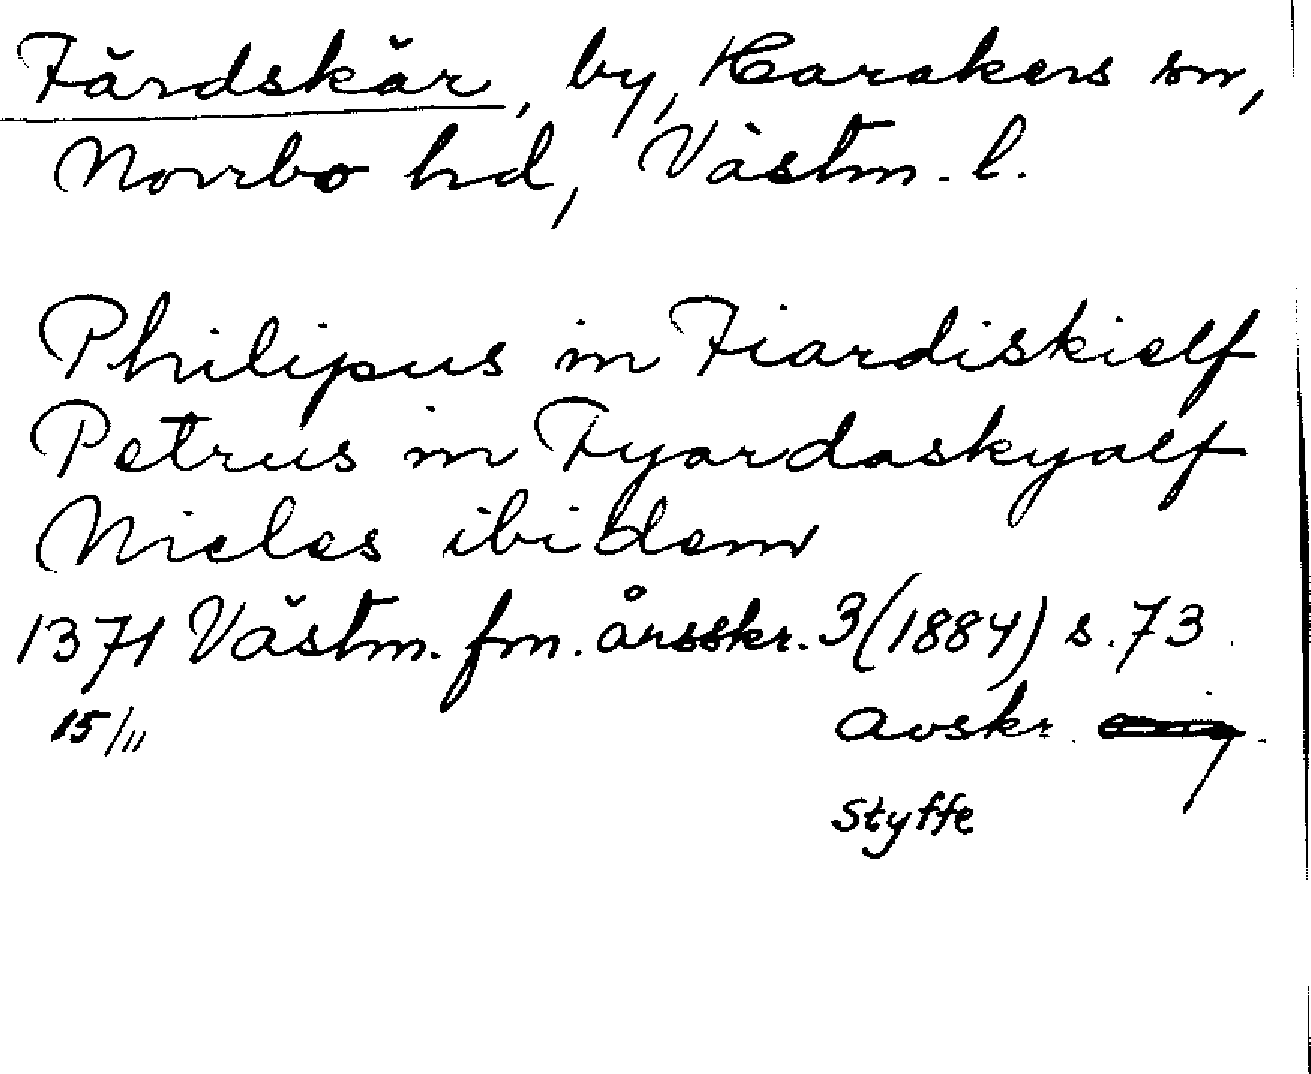 Färdskär, by, Harakers sn,
Norrbo hd, Västm. l.
Philipus in Fiardiskielf
Petrus in Fyardaskyalf
Niclas ibidem
1371 Västm. fm. årsskr. 3 (1884) s. 73.
15/11 avskr.
Styffe